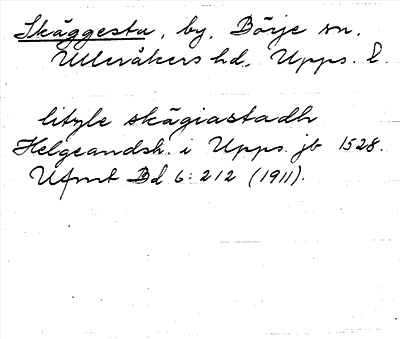 Skäggesta, by, Börje sn,
Ulleråkers hd, Upps. l.
lityle skägiastadh
Helgeandsh. i Upps. jb 1528.
UFmt Bd 6: 212 (1911).